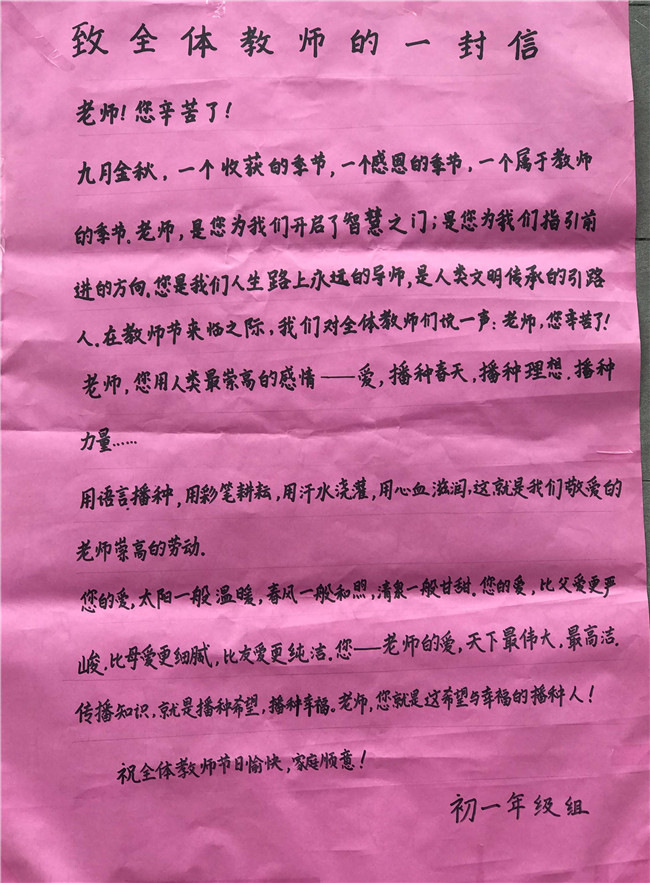 致全体教师的一封信
老师!您辛苦了!
九月金秋,一个收获的季节,一个感恩的季节,一个属于教师
的季节。老师,是您为我们开启了智慧之门;是您为我们指引前
进的方向。您是我们人生路上永远的导师,是人类文明传承的引路
人。在教师节来临之际,我们对全体教师们说一声:老师,您辛苦了!
老师,您用人类最崇高的感情——爱,播种春天,播种理想.播种
力量……
用语言播种,用彩笔耕耘,用汗水浇灌,用心血滋润,这就是我们敬爱的
老师崇高的劳动.
您的爱,太阳一般温暖,春风一般和煦,清泉一般甘甜。您的爱,比父爱更严
峻.比母爱更细腻,比友爱更纯洁.您——老师的爱,天下最伟大,最高洁.
传播知识,就是播种希望,播种幸福。老师,您就是这希望与幸福的播种人!
祝全体教师节日愉快,家庭顺意!
初一年级组